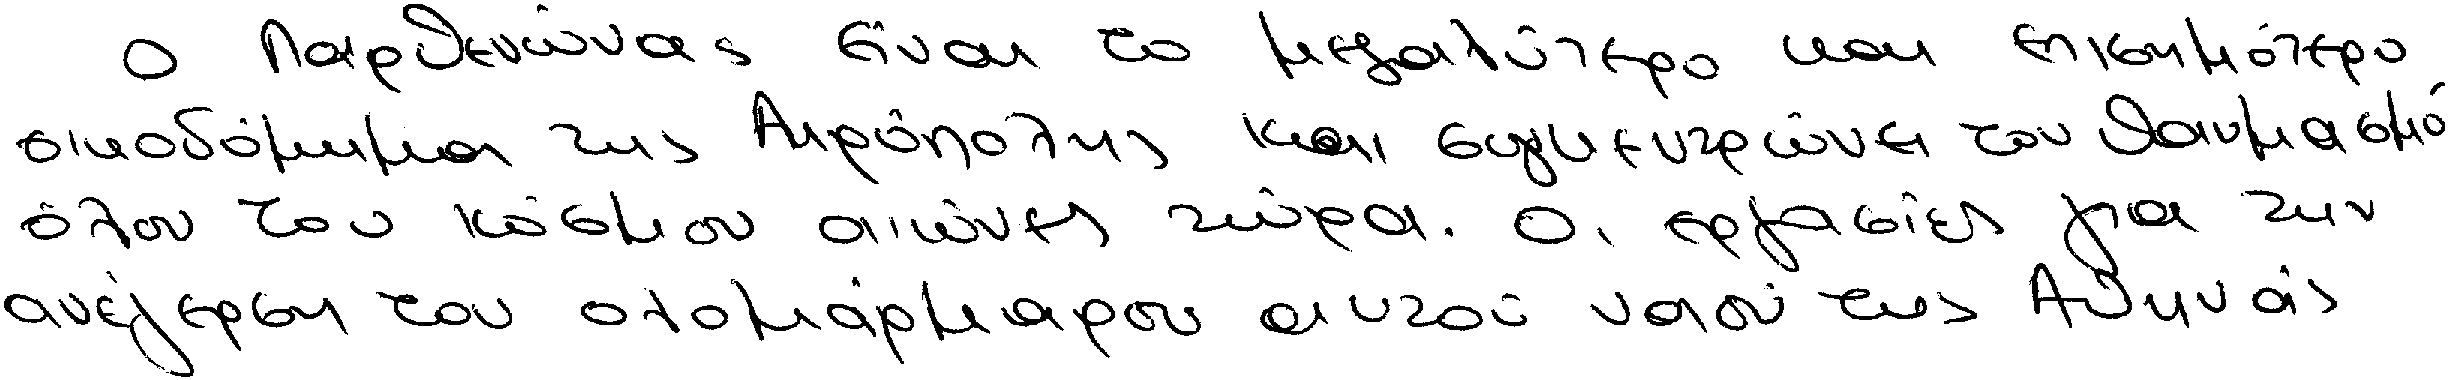 Ο Παρθενώνας είναι το μεγαλύτερο και επισημότερο
οικοδόμημα της Ακρόπολης και συγκεντρώνει τον θαυμασμό
όλου του κόσμου αιώνες τώρα. Οι εργασίες για την
ανέγερση του ολομάρμαρου αυτού ναού της Αθηνάς